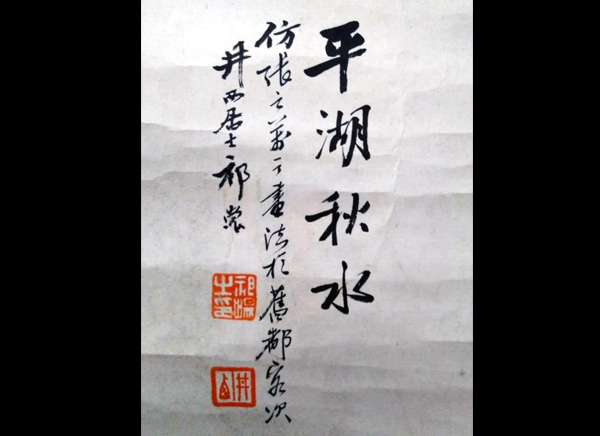 平湖秋水
仿張之萬畫法於舊都客次
井西居士祁崑
祁崑之印
井西